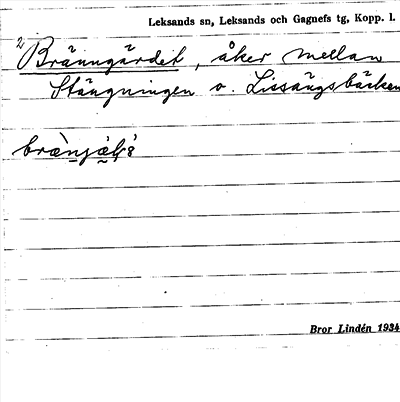 Leksands sn, Leksands och Gagnefs tg, Kopp. l.
2 Bränngärdet, åker mellan
Stängningen o. Lissängsbäcken
Bror Lindén 1934